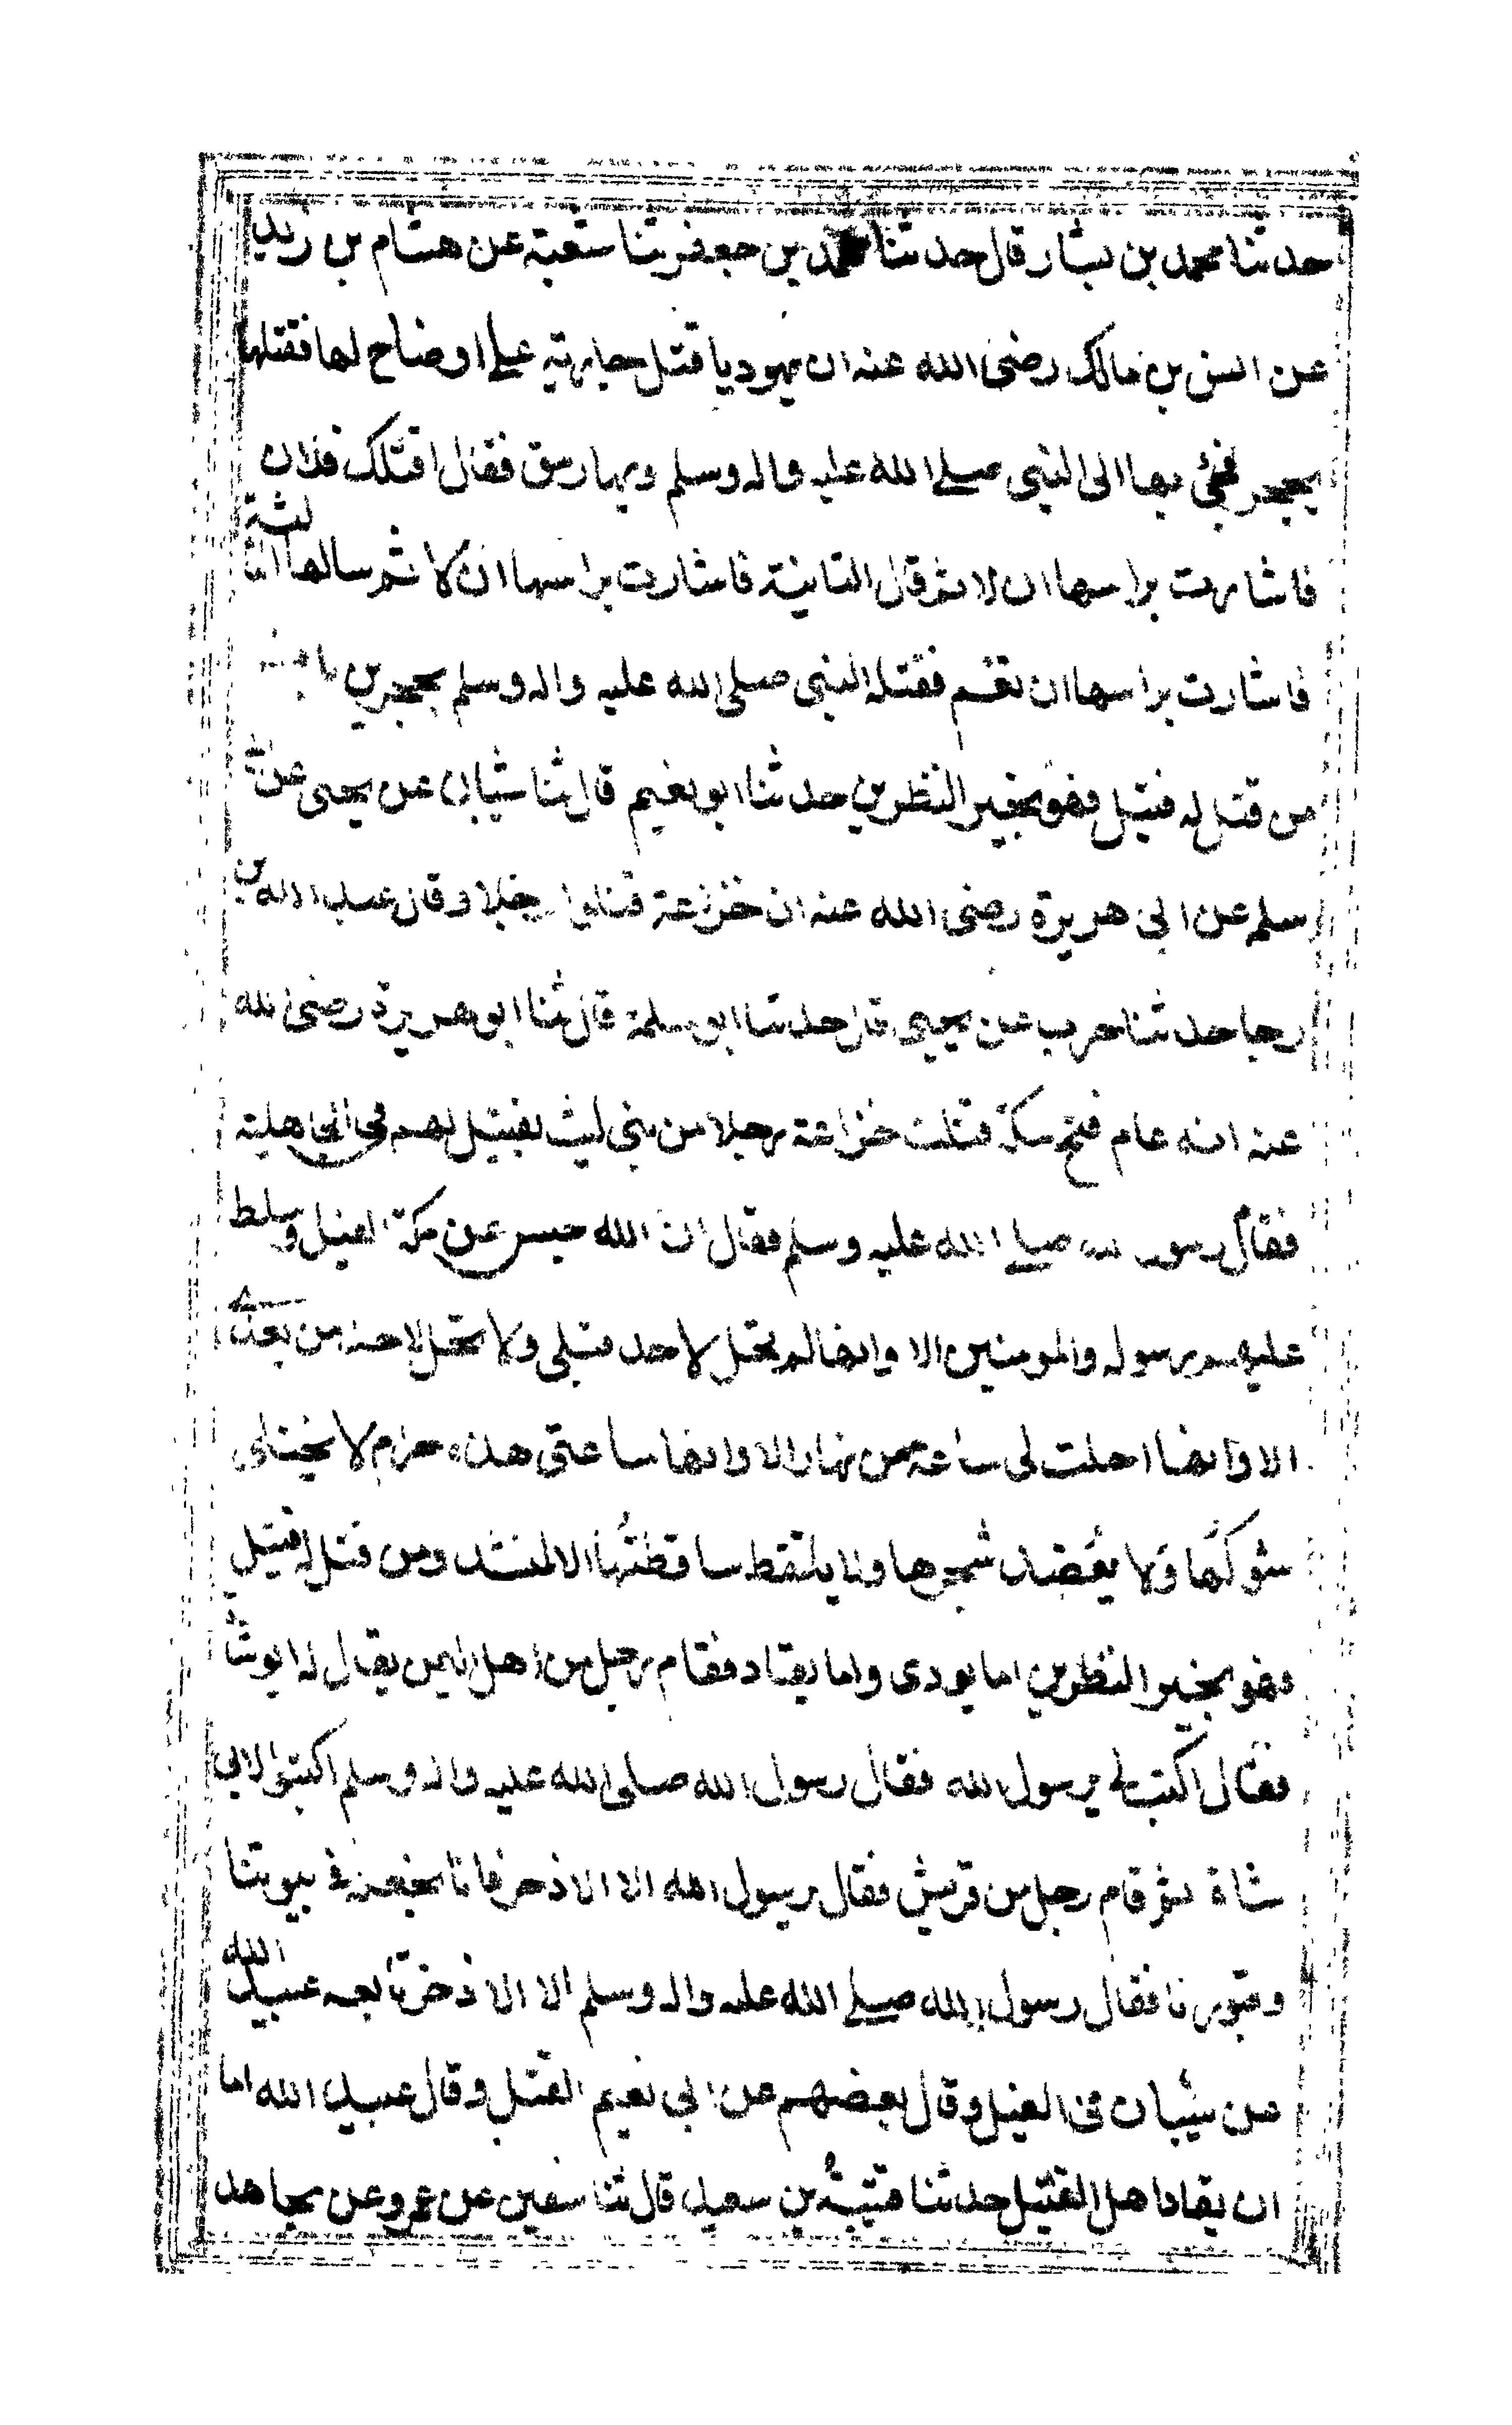 حدثنا محمد بن بشار قال حدثنا محمد بن جعفر ثنا شعبة عن هشام بن زيد
عن انس بن مالك رضى الله عنه ان يهوديا قتل جارية على اوضاح لها فقتلها
بحجر فجئ بها الى النبى صلى الله عليه واله وسلم وبها رمق فقال اقتلك فلان
فاشارت براسها ان لا ثم قال الثانية فاشارت براسها ان لا ثم سالها الثالثة
فاشارت براسها ان نعم فقتله النبى صلى الله عليه واله وسلم بحجرين باب
من قتل له قتيل فهو بخير النظرين حدثنا ابو نعيم قال ثنا شيبان عن يحيى عن ابى
سلم عن ابى هريرة رضى الله عنه ان خزاعة قتلوا رجلا وقال عبد الله بن
رجا حدثنا حرب عن يحيى قال حدثنا ابو سلمة قال ثنا ابو هريرة رضى الله
عنه انه عام فتح مكة قتلت خزاعة رجلا من بنى ليث بقتيل لهم فى الجاهلية
فقال رسول الله صلى الله عليه وسلم فقال ان الله حبس عن مكة الفيل وسلط
عليهم رسوله والمومنين الا وانها لم تحل لاحد قبلى ولا تحل لاحد من بعدے
الا وانها احلت لى ساعة من نهار الا وانها ساعتى هذه حرام لا يختلى
شوكها ولا يعضد شجرها ولا يلتقط ساقطتها الا لمنشد ومن قتل له قتيل
فهو بخير النظرين اما يودى واما يقاد فقام رجل من اهل اليمن يقال له ابو شاة
فقال اكتب لى يرسول الله فقال رسول الله صلى الله عليه واله وسلم اكتبوا لابى
شاة ثم قام رجل من قريش فقال يرسول الله الا الاذخر فانا نجعله فى بيوتنا
وقبورنا فقال رسول الله صلى الله عليه واله وسلم الا الاذخر تابعه عبيد الله
عن شيبان فى الفيل وقال بعضهم عن ابى نعيم القتل وقال عبيد الله اما
ان يقاد اهل القتيل حدثنا قتيبة بن سعيد قال ثنا سفين عن عمرو عن مجاهد